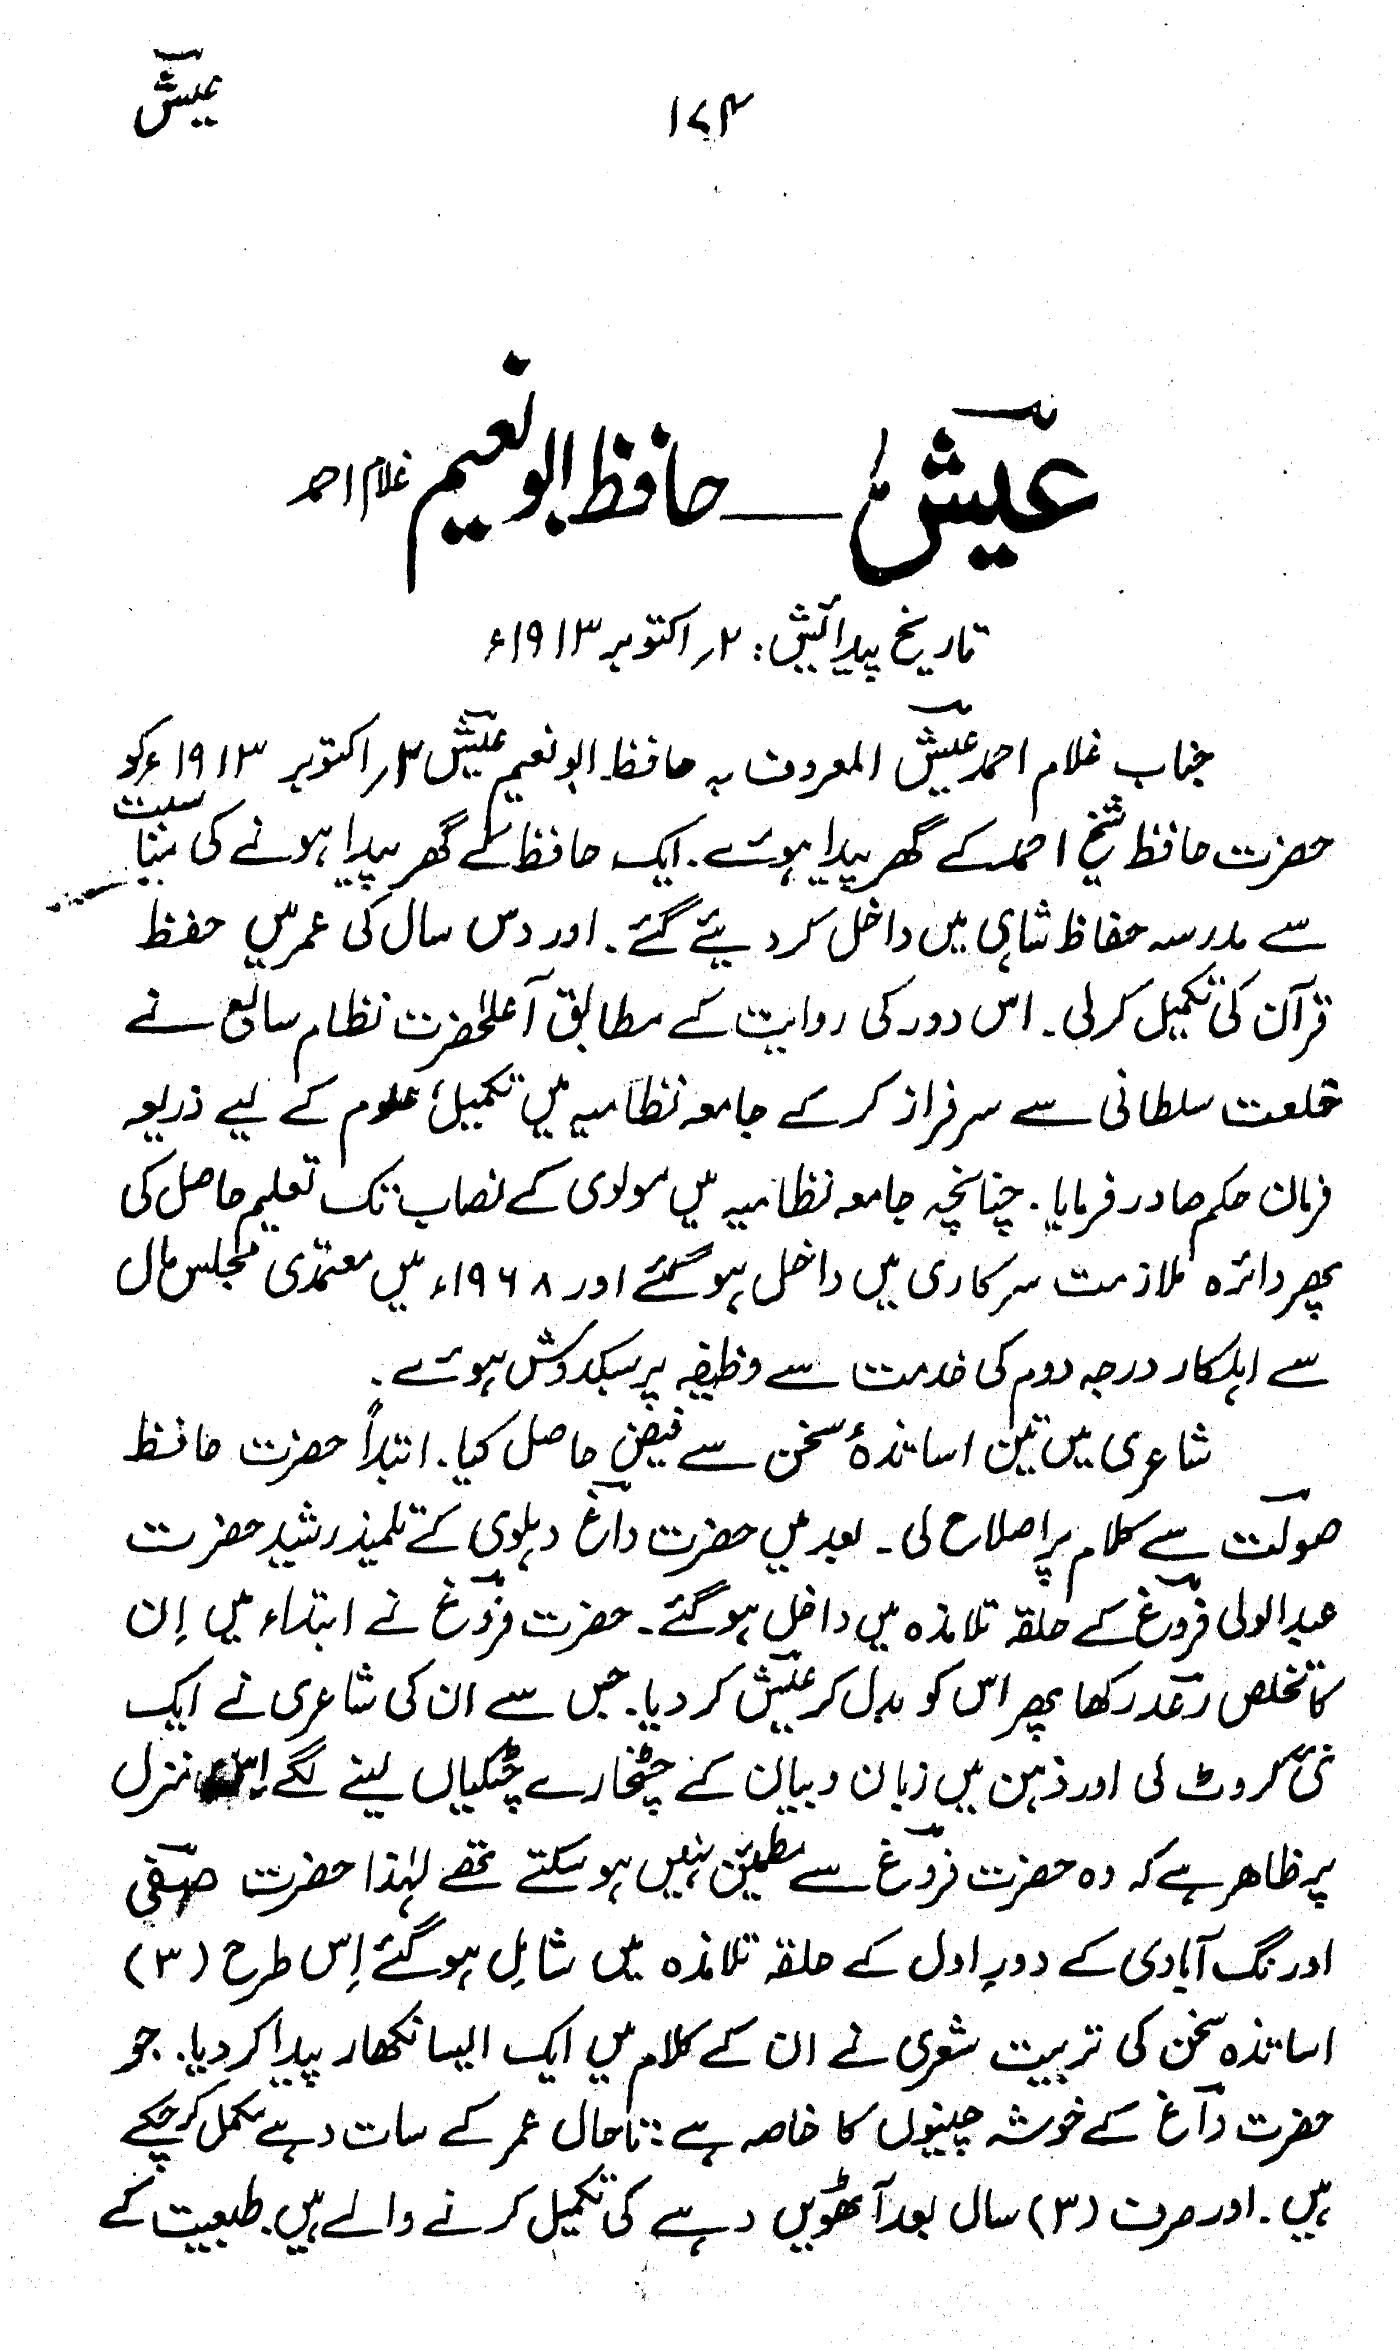 عیشؔ
۱۷۴
عیشؔ ــــ حافظ ابو نعیم غلام احمد
تاریخ پیدائش: ۲؍ اکتوبر ۱۹۱۳ء
جناب غلام احمد عیشؔ المعروف بہ حافظ ابو نعیم عیشؔ ۲؍ اکتوبر ۱۹۱۳ء کو
حضرت حافظ شیخ احمد کے گھر پیدا ہوئے۔ ایک حافظ کے گھر پیدا ہونے کی نسبت
سے مدرسہ حفاظ شاہی میں داخل کر دیئے گئے۔ اور دس سال کی عمر میں حفظ
قرآن کی تکمیل کرلی۔ اس دور کی روایت کے مطابق آعلحٰضرت نظام سابع نے
خلعت سلطانی سے سرفراز کر کے جامعہ نظامیہ میں تکمیل علوم کے لیے ذریعہ
فرمان حکم صادر فرمایا۔ چنانچہ جامعہ نظامیہ میں مولوی کے نصاب تک تعلیم حاصل کی
پھر دائرہ ملازمت سرکاری میں داخل ہو گئے اور ۱۹۶۸ء میں معتمدی مجلس مال
سے اہلکار درجہ دوم کی خدمت سے وظیفہ پر سبکدوش ہوئے۔
شاعری میں تین اساتذۂ سخن سے فیض حاصل کیا۔ ابتداً حضرت حافظ
صولتؔ سے کلام پر اصلاح لی۔ بعد میں حضرت داغؔ دہلوی کے تلمیذ رشید حضرت
عبدالولی فروغؔ کے حلقہ تلامذہ میں داخل ہو گئے۔ حضرت فروغؔ نے ابتداء میں اِن
کا تخلص رعدؔ رکھا پھر اس کو بدل کر عیشؔ کر دیا۔ جس سے ان کی شاعری نے ایک
نئی کروٹ لی اور ذہن میں زبان و بیان کے چٹخارے چٹکیاں لینے لگے اِس منزل
پر ظاہر ہے کہ وہ حضرت فروغؔ سے مطمئن نہیں ہو سکتے تھے لہٰذا حضرت صفیؔ
اورنگ آبادی کے دورِ اول کے حلقہ تلامذہ میں شامِل ہو گئے اِس طرح (۳)
اساتذہ سخن کی تربیت شعری نے ان کے کلام میں ایک ایسا نکھار پیدا کر دیا۔ جو
حضرت داغؔ کے خوشہ چینوں کا خاصہ ہے: تاحال عمر کے سات دہے مکمل کر چکے
ہیں۔ اور صرف (۳) سال بعد آٹھویں دہے کی تکمیل کرنے والے ہیں۔ طبیعت کے